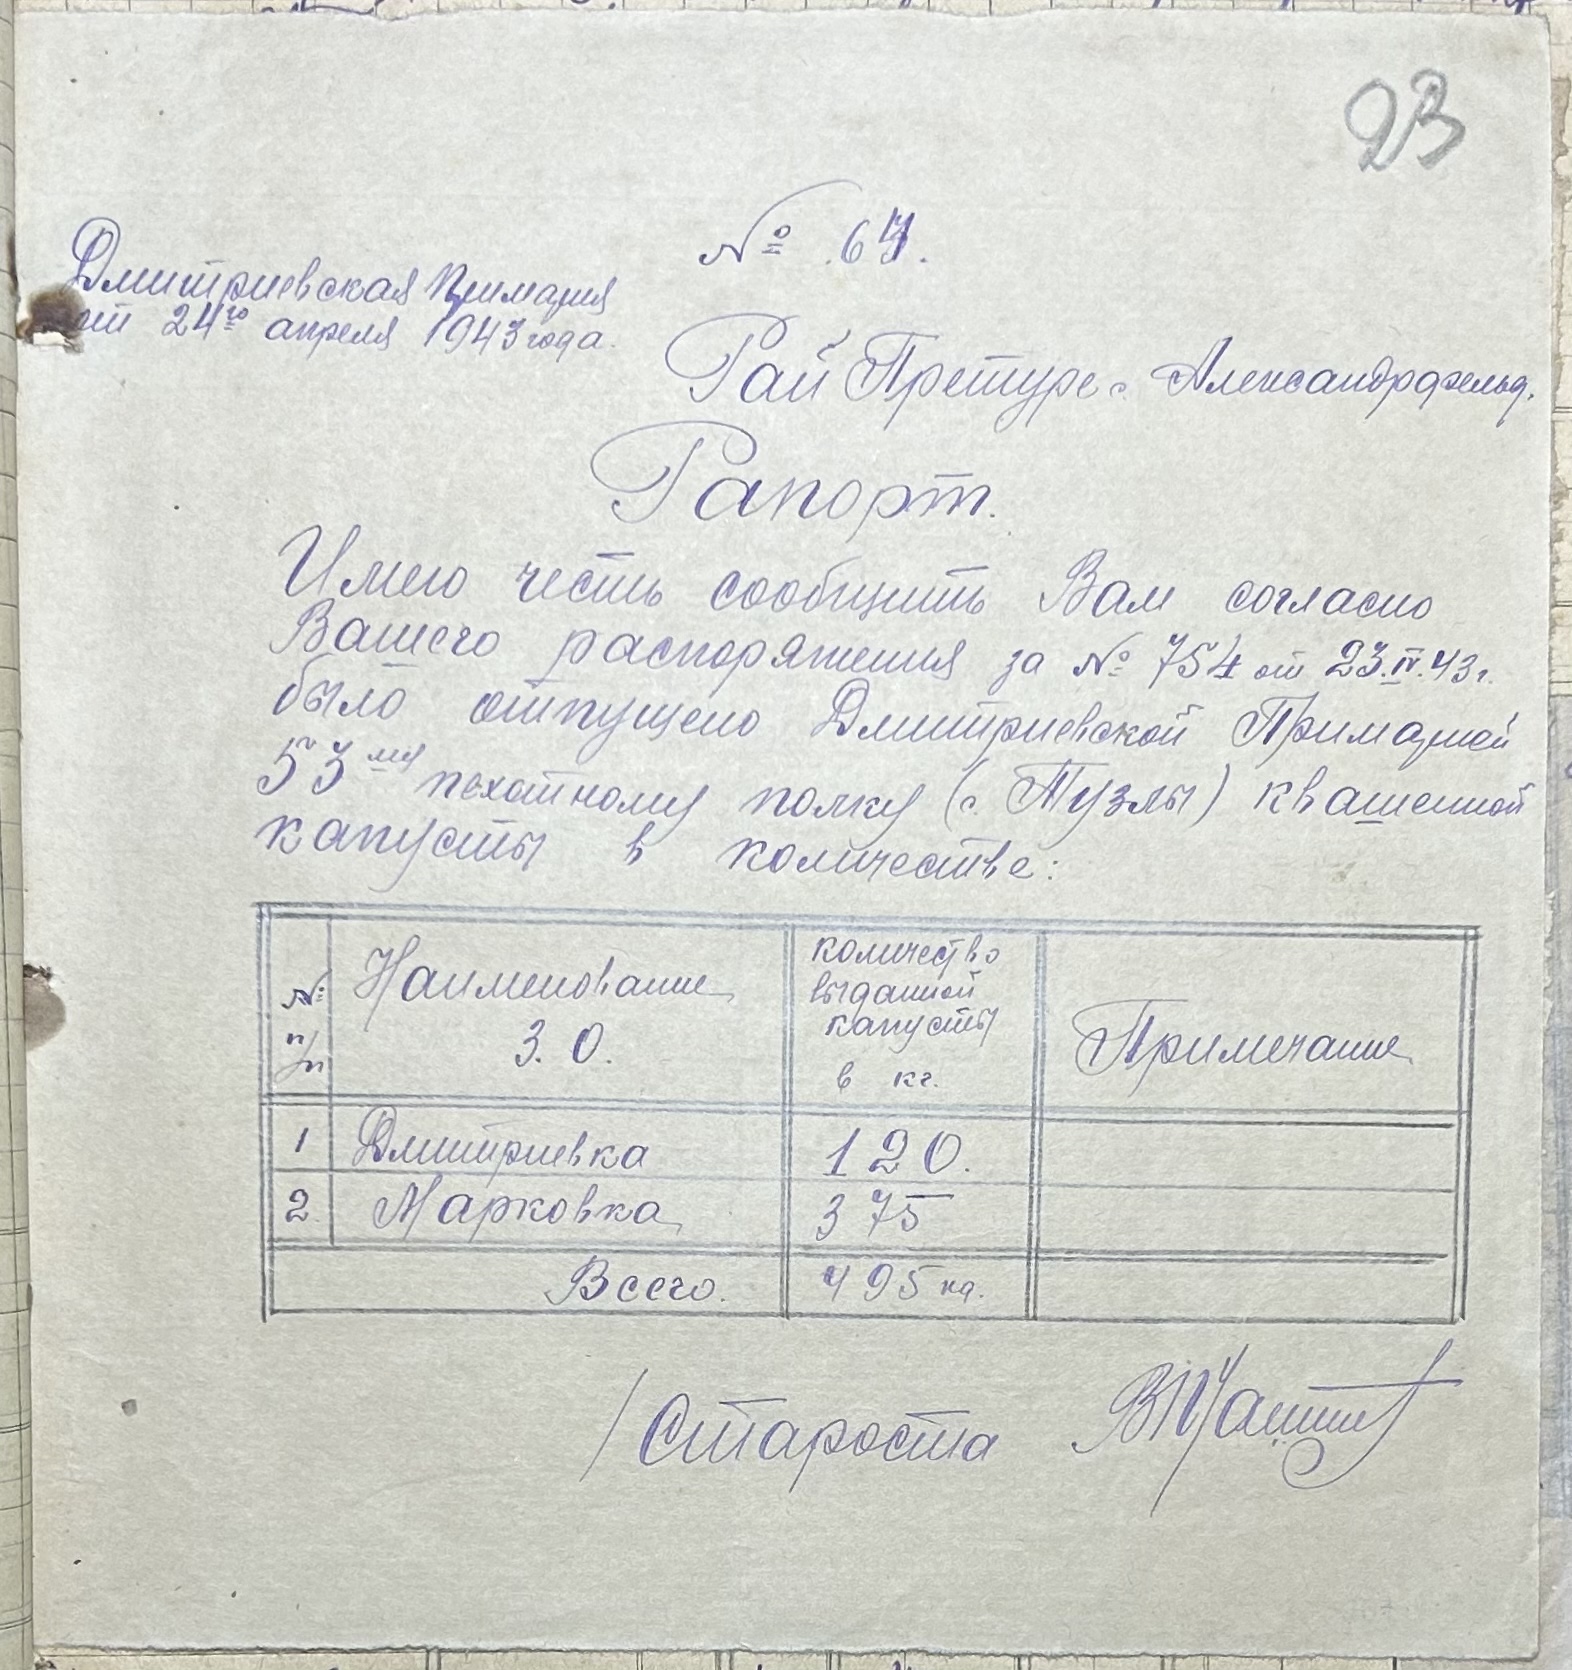 23
№ 67.
Дмитриевская Примария
от 24го апреля 1943 года.
Рай Претуре с. Александрфельд.
Рапорт.
Имею честь сообщить Вам согласно
Вашего распоряжения за № 754 от 23.IV.43 г.
было отпущено Дмитриевской Примарией
53 му пехотному полку (с. Тузлы) квашенной
капусты в количестве:
№ п/п Наименование З. О. количество выданной капусты в кг. Примечание
1 Дмитриевка 120.
2. Марковка 375
Всего. 495 кг.
/ Староста